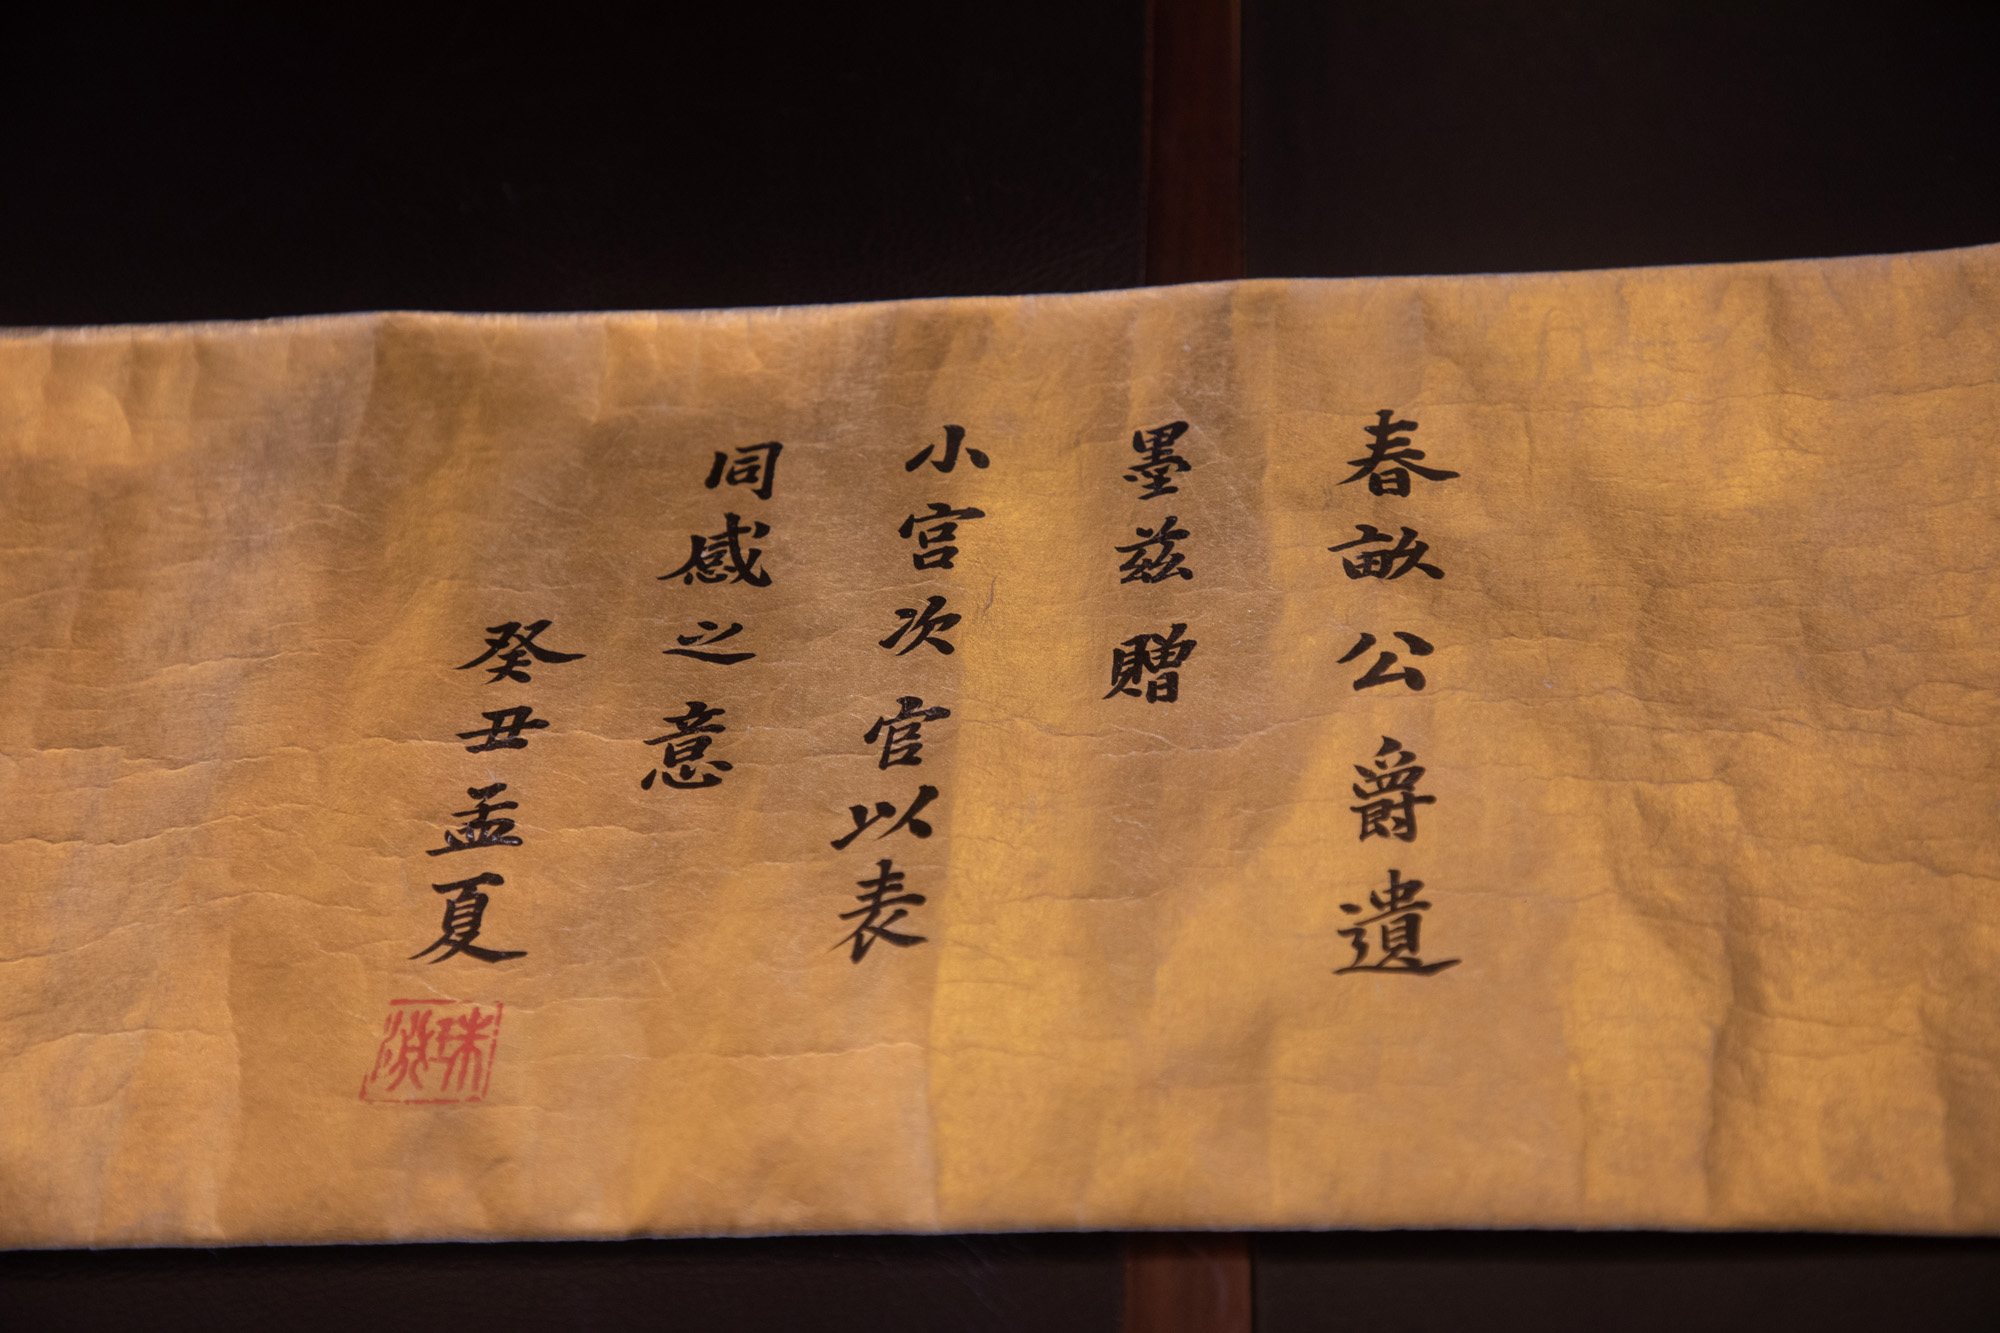 春畝公爵遺
墨茲贈
小宮次官以表
同感之意
癸丑孟夏